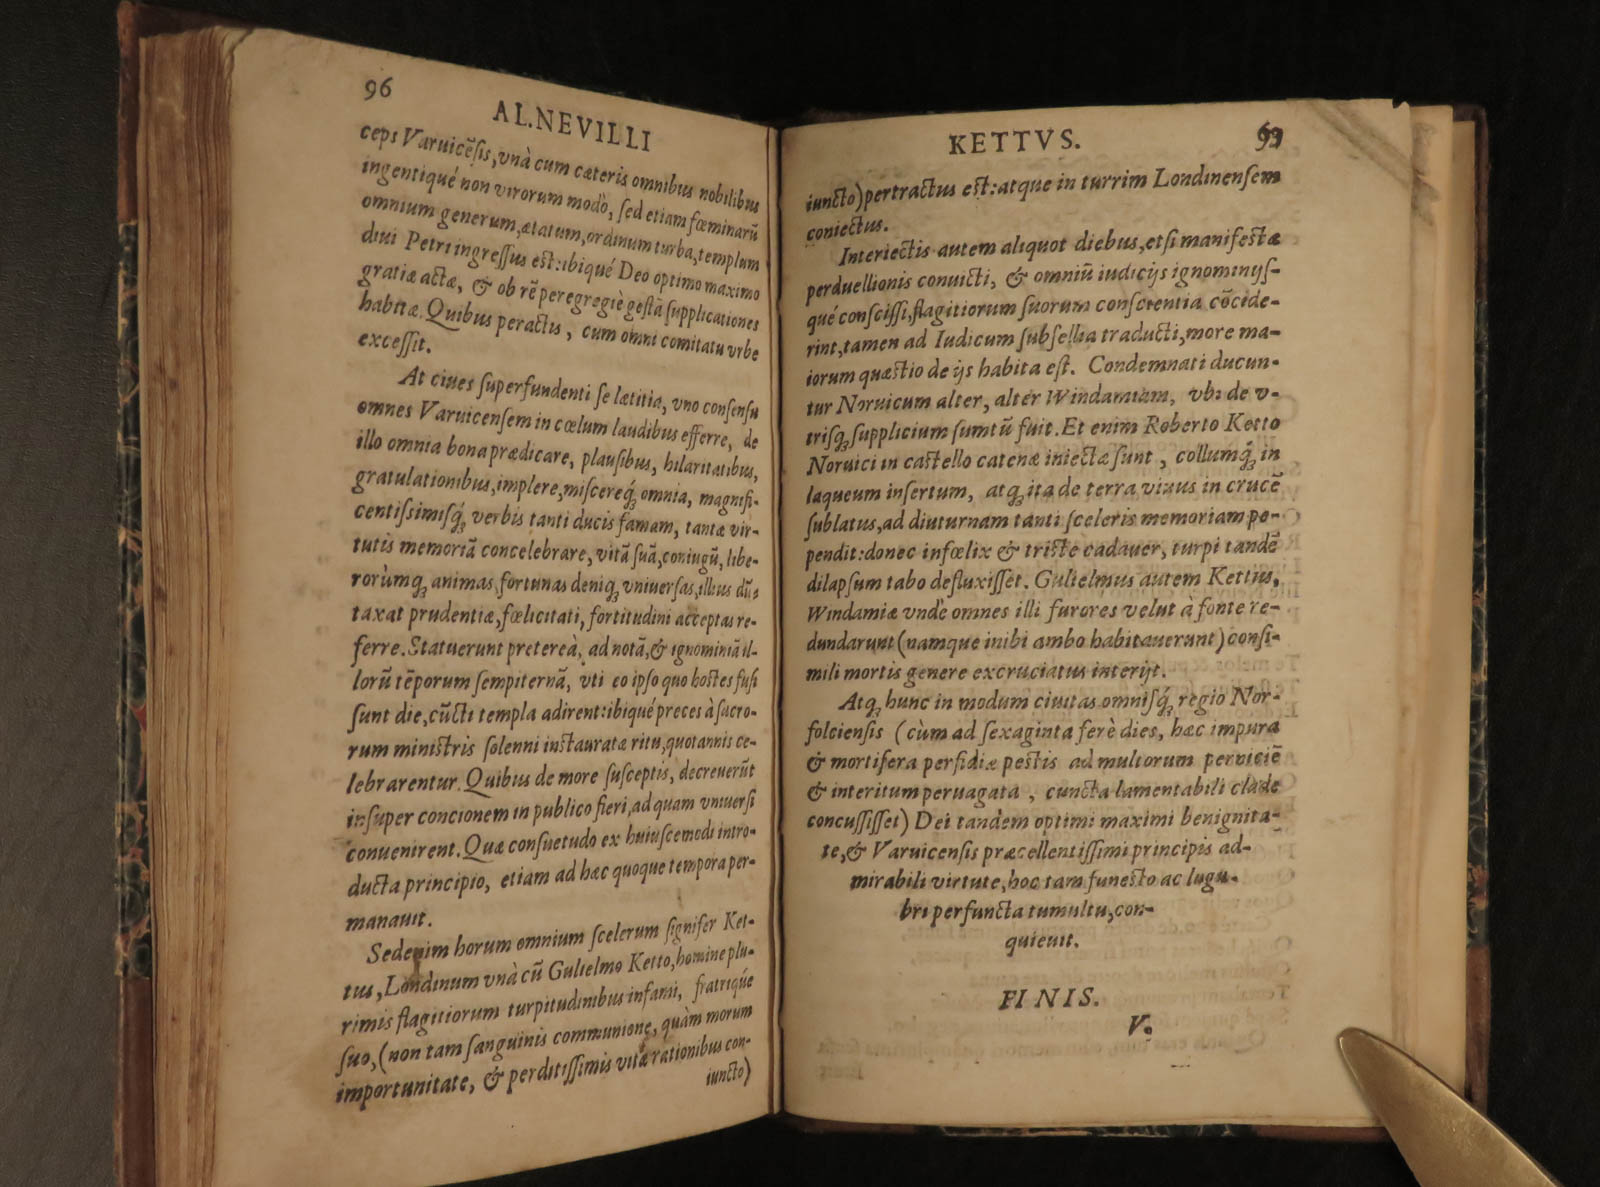 96
AL.NEVILLI
ceps Varuicẽſis, vnà cum cæteris omnibus nobilibus
ingentiqué non virorum modò, ſed etiam fœminarũ
omnium generum, ætatum, ordinum turba, templum
diui Petri ingreſſus est: ibiqué Deo optimo maximo
gratiæ actæ, & ob rẽ peregregiè geſtã ſupplicationes
habitæ. Quibus peractis, cum omni comitatu vrbe
exceſſit.
At ciues ſuperfundenti ſe lætitia, vno conſenſu
omnes Varuicenſem in cœlum laudibus efferre, de
illo omnia bona prædicare, plauſibus, hilaritatibus,
gratulationibus, implere, miſcereq́ꝫ omnia, magnifi-
centiſsimiſq́ꝫ verbis tanti ducis famam, tantæ vir-
tutis memoriã concelebrare, vitã ſuã, coniugũ, libe-
rorùmqꝫ animas, fortunas deniqꝫ vniuerſas, illius dũ-
taxat prudentiæ, fœlicitati, fortitudini acceptas re-
ferre. Statuerunt pretereà, ad notã, & ignominiã il-
lorũ tẽporum ſempiternã, vti eo ipſo quo hoſtes fuſi
ſunt die, cũcti templa adirent: ibiqué preces à ſacro-
rum ministris ſolenni instauratæ ritu, quotannis ce-
lebrarentur. Quibus de more ſuſceptis, decreuerũt
inſuper concionem in publico fieri, ad quam vniuerſi
conuenirent. Quæ conſuetudo ex huiuſcemodi intro-
ducta principio, etiam ad hæc quoque tempora per-
manauit.
Sed enim horum omnium ſcelerum ſignifer Ket-
tus, Londinum vnà cũ Gulielmo Ketto, homine plu-
rimis flagitiorum turpitudinibus infami, fratriqúe
ſuo, (non tam ſanguinis communione, quàm morum
importunitate, & perditiſſimis vitæ rationibus con-
iuncto)
KETTVS.
iuncto) pertractus est: atque in turrim Londinenſem
coniectus.
Interiectis autem aliquot diebus, etſi manifeſtæ
perduellionis conuicti, & omniũ iudicijs ignominijſ-
qué conſciſſi, flagitiorum ſuorum conſcientia cõcide-
rint, tamen ad Iudicum ſubſellia traducti, more ma-
iorum quæſtio de ijs habita eſt. Condemnati ducun-
tur Noruicum alter, alter Windamiam, vbi de v-
triſqꝫ ſupplicium ſumtũ fuit. Et enim Roberto Ketto
Noruici in caſtello catenæ iniectæ ſunt, collumq́ꝫ in
laqueum inſertum, atqꝫ ita de terra viuus in crucẽ
ſublatus, ad diuturnam tanti ſceleris memoriam pe-
pendit: donec infœlix & triſte cadauer, turpi tandẽ
dilapſum tabo defluxiſſet. Gulielmus autem Kettus,
Windamiæ vndè omnes illi furores velut à fonte re-
dundarunt (namque inibi ambo habitauerunt) conſi-
mili mortis genere excruciatus interijt.
Atqꝫ hunc in modum ciuitas omniſq́ꝫ regio Nor-
folcienſis (cùm ad ſexaginta ferè dies, hæc impura
& mortifera perfidiæ peſtis ad multorum perniciẽ
& interitum peruagata, cuncta lamentabili clade
concuſſiſſet) Dei tandem optimi maximi benignita-
te, & Varuicenſis præcellentiſſimi principis ad-
mirabili virtute, hoc tam funeſto ac lugu-
bri perfuncta tumultu, con-
quieuit.
FINIS.
V.